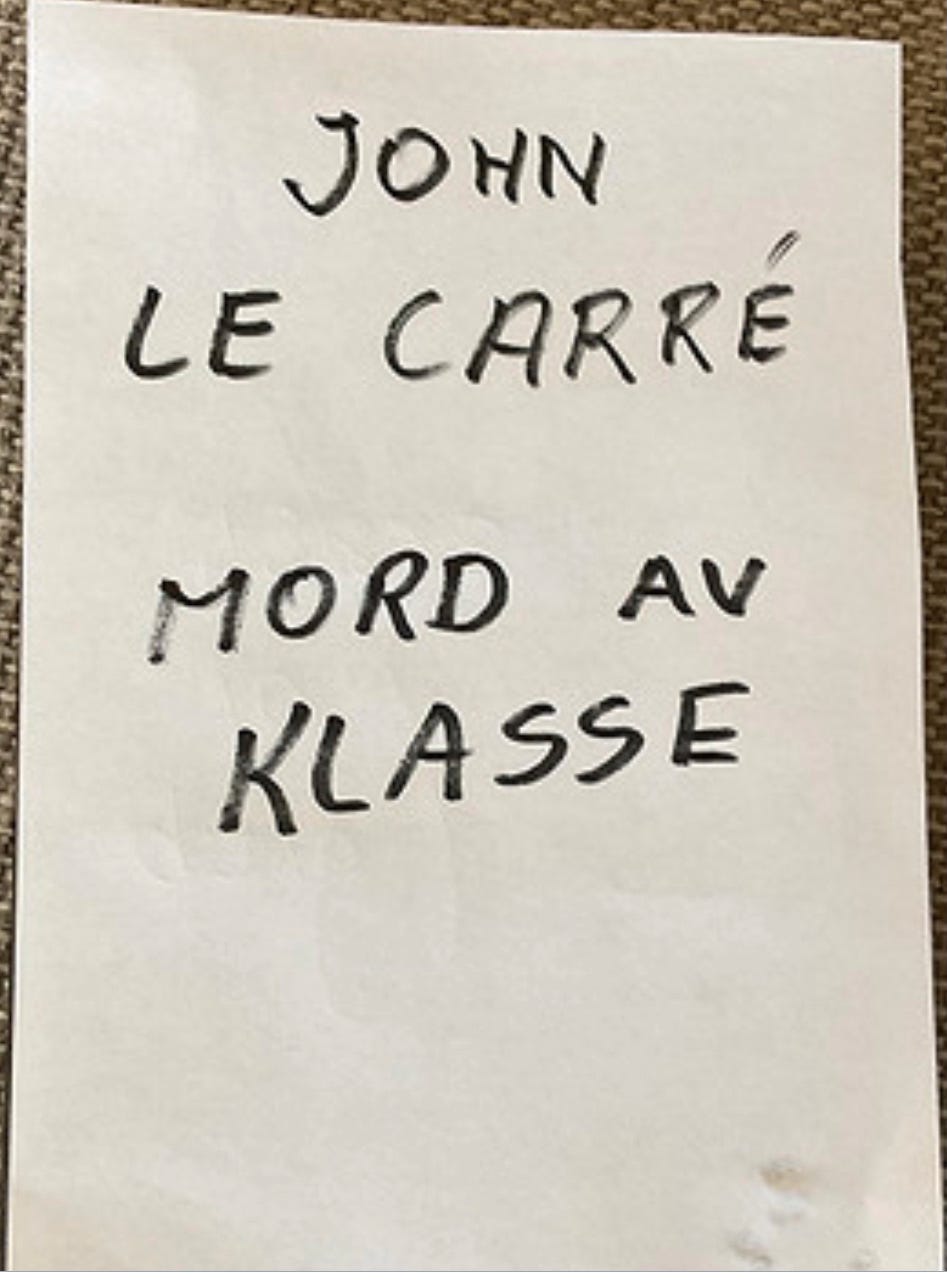 JOHN
LE CARRÉ
MORD AV
KLASSE